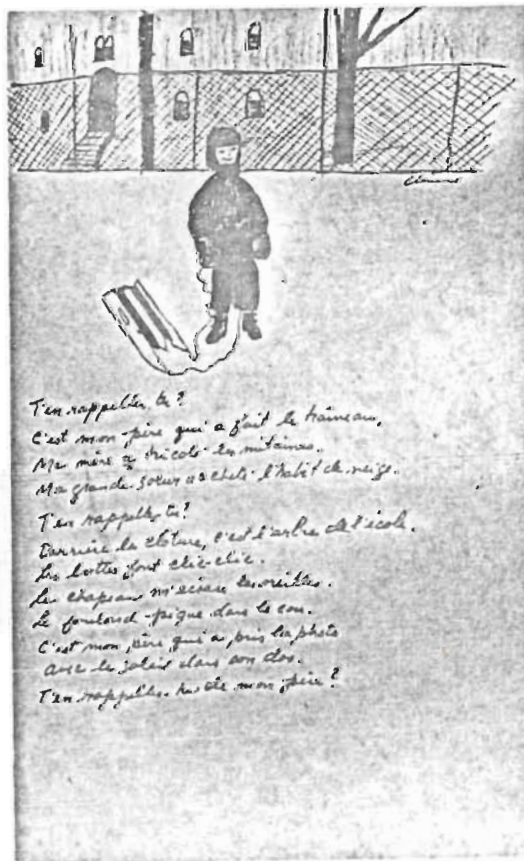 T'en rappelles tu?
C'est mon père qui a fait le traîneau.
Ma mère a tricoté les mitaines.
Ma grande soeur a acheté l'habit de neige.
T'en rappelles tu?
Derrière la clôture, c'est l'arbre de l'école.
Les bottes font clic-clic.
Le chapeau m'écrase les oreilles.
Le foulard pique dans le cou.
C'est mon père qui a pris la photo
avec le soleil dans son dos.
T'en rappelles tu de mon père?